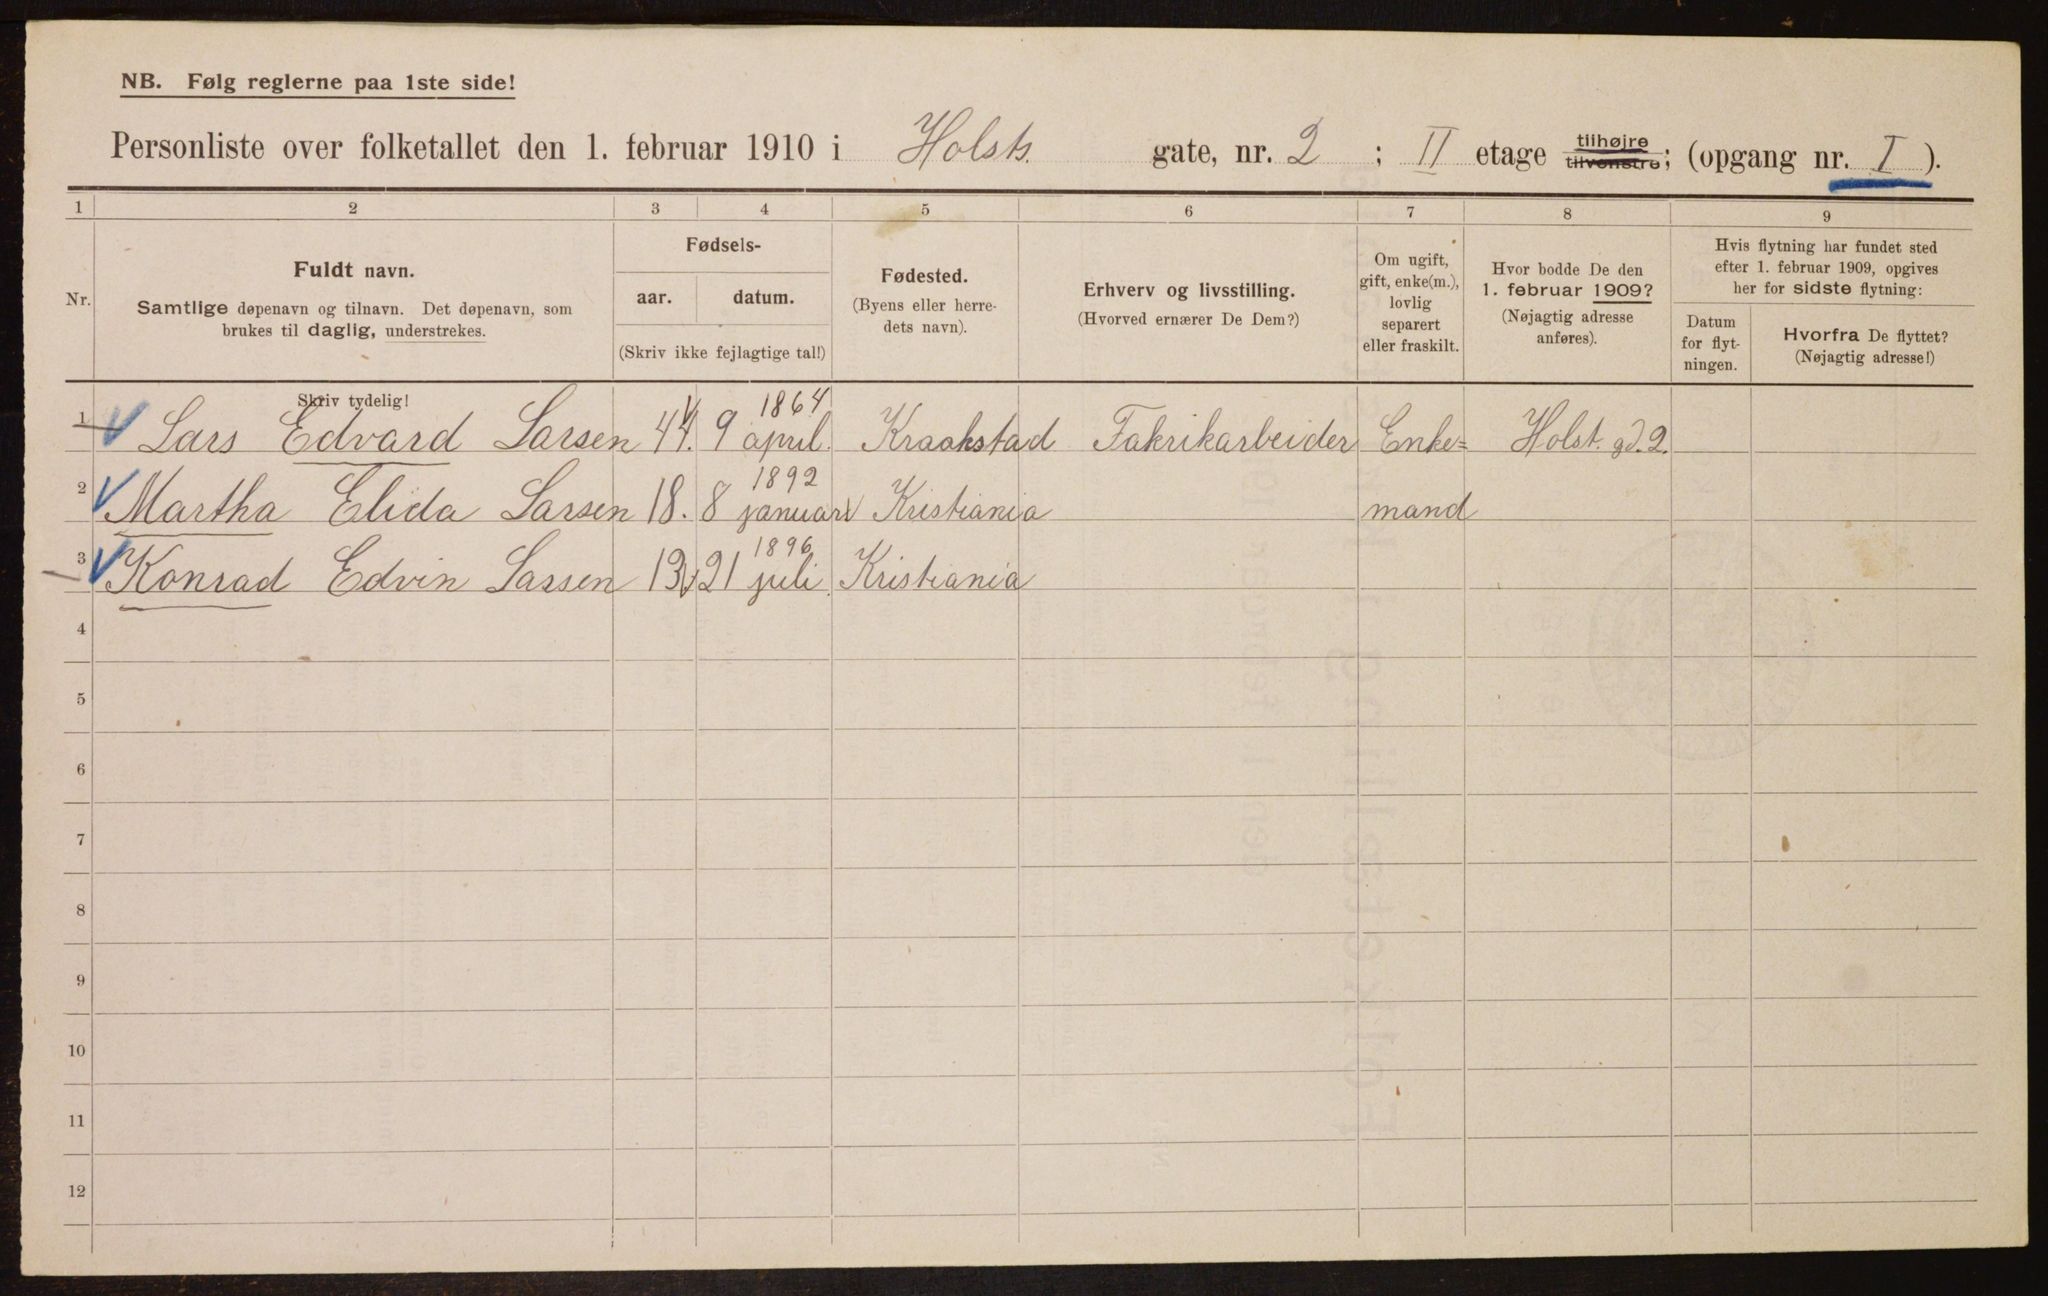 NB. Følg reglerne paa 1ste side!
Personliste over folketallet den 1. februar 1910 i Holsts. gate, nr. 2 ; II etage tilhøjre tilvenstre; (opgang nr. I ).
1 2 3 4 5 6 7 8 9
Nr.
Fuldt navn.
Samtlige døpenavn og tilnavn. Det døpenavn, som
brukes til daglig, understrekes.
Skriv tydelig!
Fødsels-
aar. datum.
(Skriv ikke fejlagtige tal!)
Fødested.
(Byens eller herre-
dets navn).
Erhverv og livsstilling.
(Hvorved ernærer De Dem?)
Om ugift,
gift, enke(m.),
lovlig
separert
eller fraskilt.
Hvor bodde De den
1. februar 1909?
(Nøjagtig adresse
anføres).
Hvis flytning har fundet sted
efter 1. februar 1909, opgives
her for sidste flytning:
Datum
for flyt-
ningen.
Hvorfra De flyttet?
(Nøjagtig adresse!)
1 Lars Edvard Larsen 44. 9 april. 1864 Kraakstad Fakrikarbeider Enke= Holst. gd. 2.
2 Martha Elida Larsen 18. 8 januar 1892 Kristiania mand
3 Konrad Edvin Larsen 13 21 juli. 1896 Kristiania
4
5
6
7
8
9
10
11
12